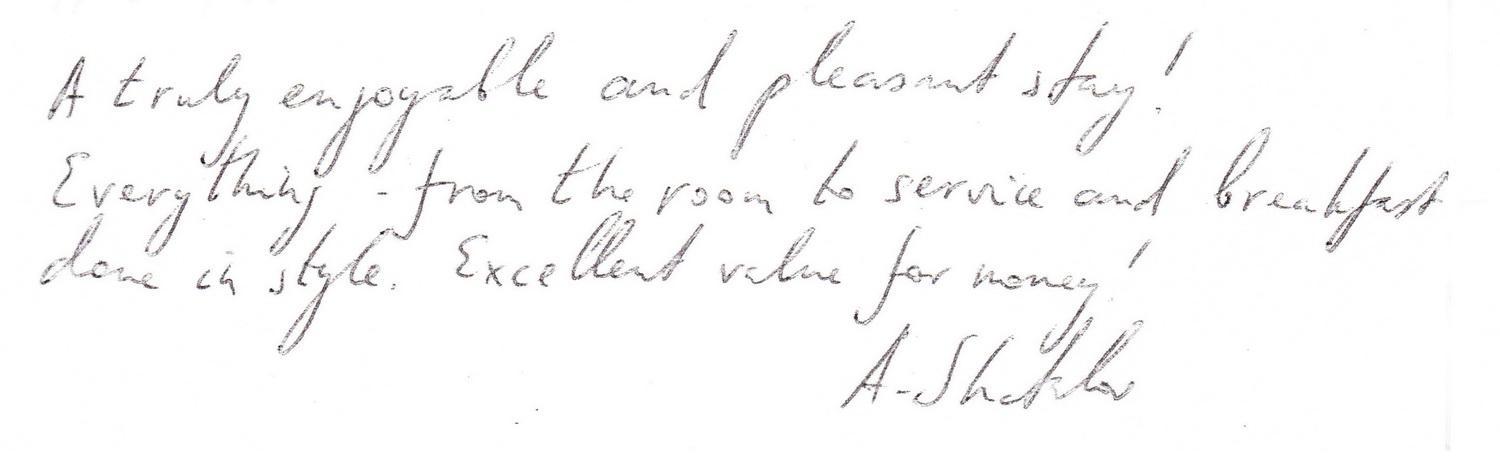 A truly enjoyable and pleasant stay!
Everything - from the room to service and breakfast
done in style. Excellent value for money!